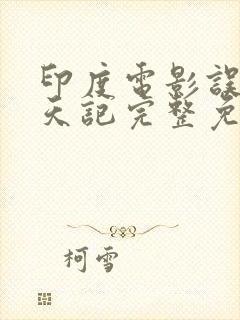 印度電影誤
天記完整免
柯雪